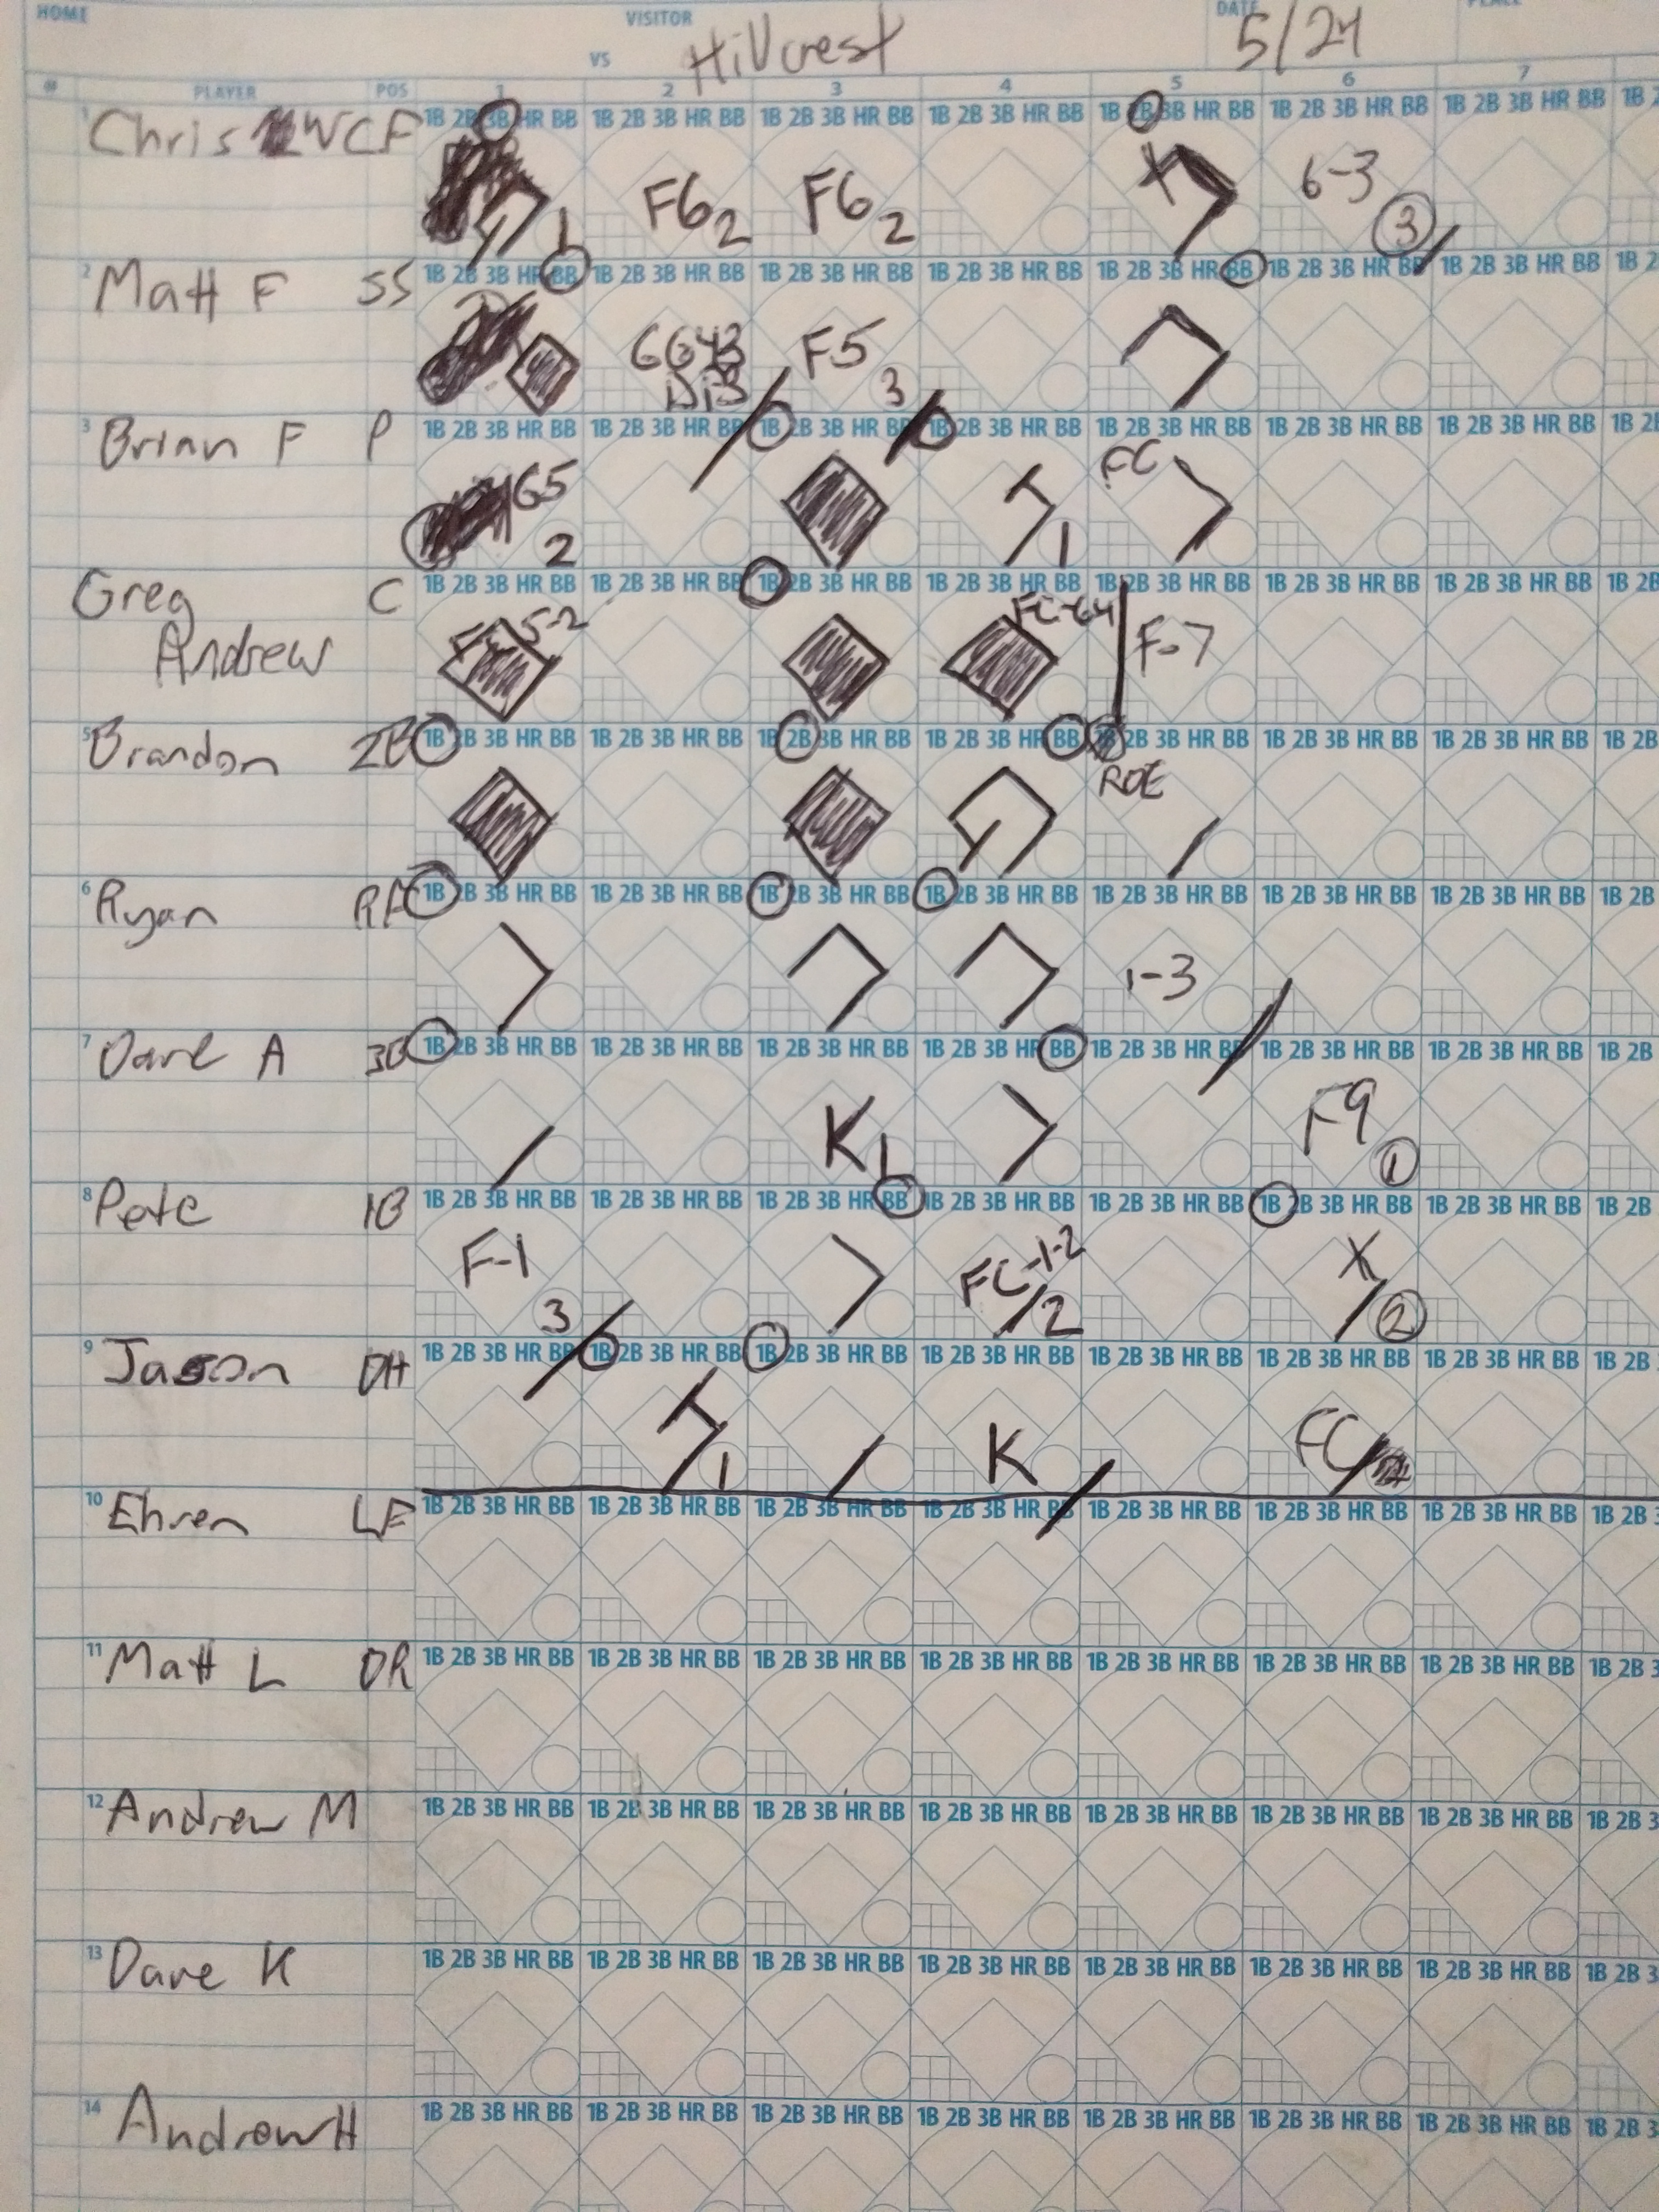 HOME VISITOR DATE
VS Hillcrest 5/24
# PLAYER POS 1 2 3 4 5 6 7
1 Chris W CF 1B 2B 3B HR BB 1B 2B 3B HR BB 1B 2B 3B HR BB 1B 2B 3B HR BB 1B 2B 3B HR BB 1B 2B 3B HR BB 1B 2B 3B HR BB 1B 2
1 F6 2 F6 2 6-3 3
2 Matt F SS 1B 2B 3B HR BB 1B 2B 3B HR BB 1B 2B 3B HR BB 1B 2B 3B HR BB 1B 2B 3B HR BB 1B 2B 3B HR BB 1B 2B 3B HR BB 1B 2
F5 3
3 Brian F P 1B 2B 3B HR BB 1B 2B 3B HR BB 1B 2B 3B HR BB 1B 2B 3B HR BB 1B 2B 3B HR BB 1B 2B 3B HR BB 1B 2B 3B HR BB 1B 2B
G5 2 1 FC
Greg C 1B 2B 3B HR BB 1B 2B 3B HR BB 1B 2B 3B HR BB 1B 2B 3B HR BB 1B 2B 3B HR BB 1B 2B 3B HR BB 1B 2B 3B HR BB 1B 2B
Andrew 5-2 FC-64 F-7
5 Brandon 2B 1B 2B 3B HR BB 1B 2B 3B HR BB 1B 2B 3B HR BB 1B 2B 3B HR BB 2B 3B HR BB 1B 2B 3B HR BB 1B 2B 3B HR BB 1B 2B
ROE
6 Ryan RF 1B 2B 3B HR BB 1B 2B 3B HR BB 1B 2B 3B HR BB 1B 2B 3B HR BB 1B 2B 3B HR BB 1B 2B 3B HR BB 1B 2B 3B HR BB 1B 2B
1-3
7 Dave A 3B 1B 2B 3B HR BB 1B 2B 3B HR BB 1B 2B 3B HR BB 1B 2B 3B HR BB 1B 2B 3B HR BB 1B 2B 3B HR BB 1B 2B 3B HR BB 1B 2B
K 1 F9 1
8 Pete 1B 1B 2B 3B HR BB 1B 2B 3B HR BB 1B 2B 3B HR BB 1B 2B 3B HR BB 1B 2B 3B HR BB 1B 2B 3B HR BB 1B 2B 3B HR BB 1B 2B
F-1 3 FC-1-2 2 X 2
9 Jason DH 1B 2B 3B HR BB 1B 2B 3B HR BB 1B 2B 3B HR BB 1B 2B 3B HR BB 1B 2B 3B HR BB 1B 2B 3B HR BB 1B 2B 3B HR BB 1B 2B
1 K FC
10 Ehren LF 1B 2B 3B HR BB 1B 2B 3B HR BB 1B 2B 3B HR BB 1B 2B 3B HR BB 1B 2B 3B HR BB 1B 2B 3B HR BB 1B 2B 3B HR BB 1B 2B 3
11 Matt L DR 1B 2B 3B HR BB 1B 2B 3B HR BB 1B 2B 3B HR BB 1B 2B 3B HR BB 1B 2B 3B HR BB 1B 2B 3B HR BB 1B 2B 3B HR BB 1B 2B 3
12 Andrew M 1B 2B 3B HR BB 1B 2B 3B HR BB 1B 2B 3B HR BB 1B 2B 3B HR BB 1B 2B 3B HR BB 1B 2B 3B HR BB 1B 2B 3B HR BB 1B 2B 3
13 Dave K 1B 2B 3B HR BB 1B 2B 3B HR BB 1B 2B 3B HR BB 1B 2B 3B HR BB 1B 2B 3B HR BB 1B 2B 3B HR BB 1B 2B 3B HR BB 1B 2B 3
14 Andrew H 1B 2B 3B HR BB 1B 2B 3B HR BB 1B 2B 3B HR BB 1B 2B 3B HR BB 1B 2B 3B HR BB 1B 2B 3B HR BB 1B 2B 3B HR BB 1B 2B 3